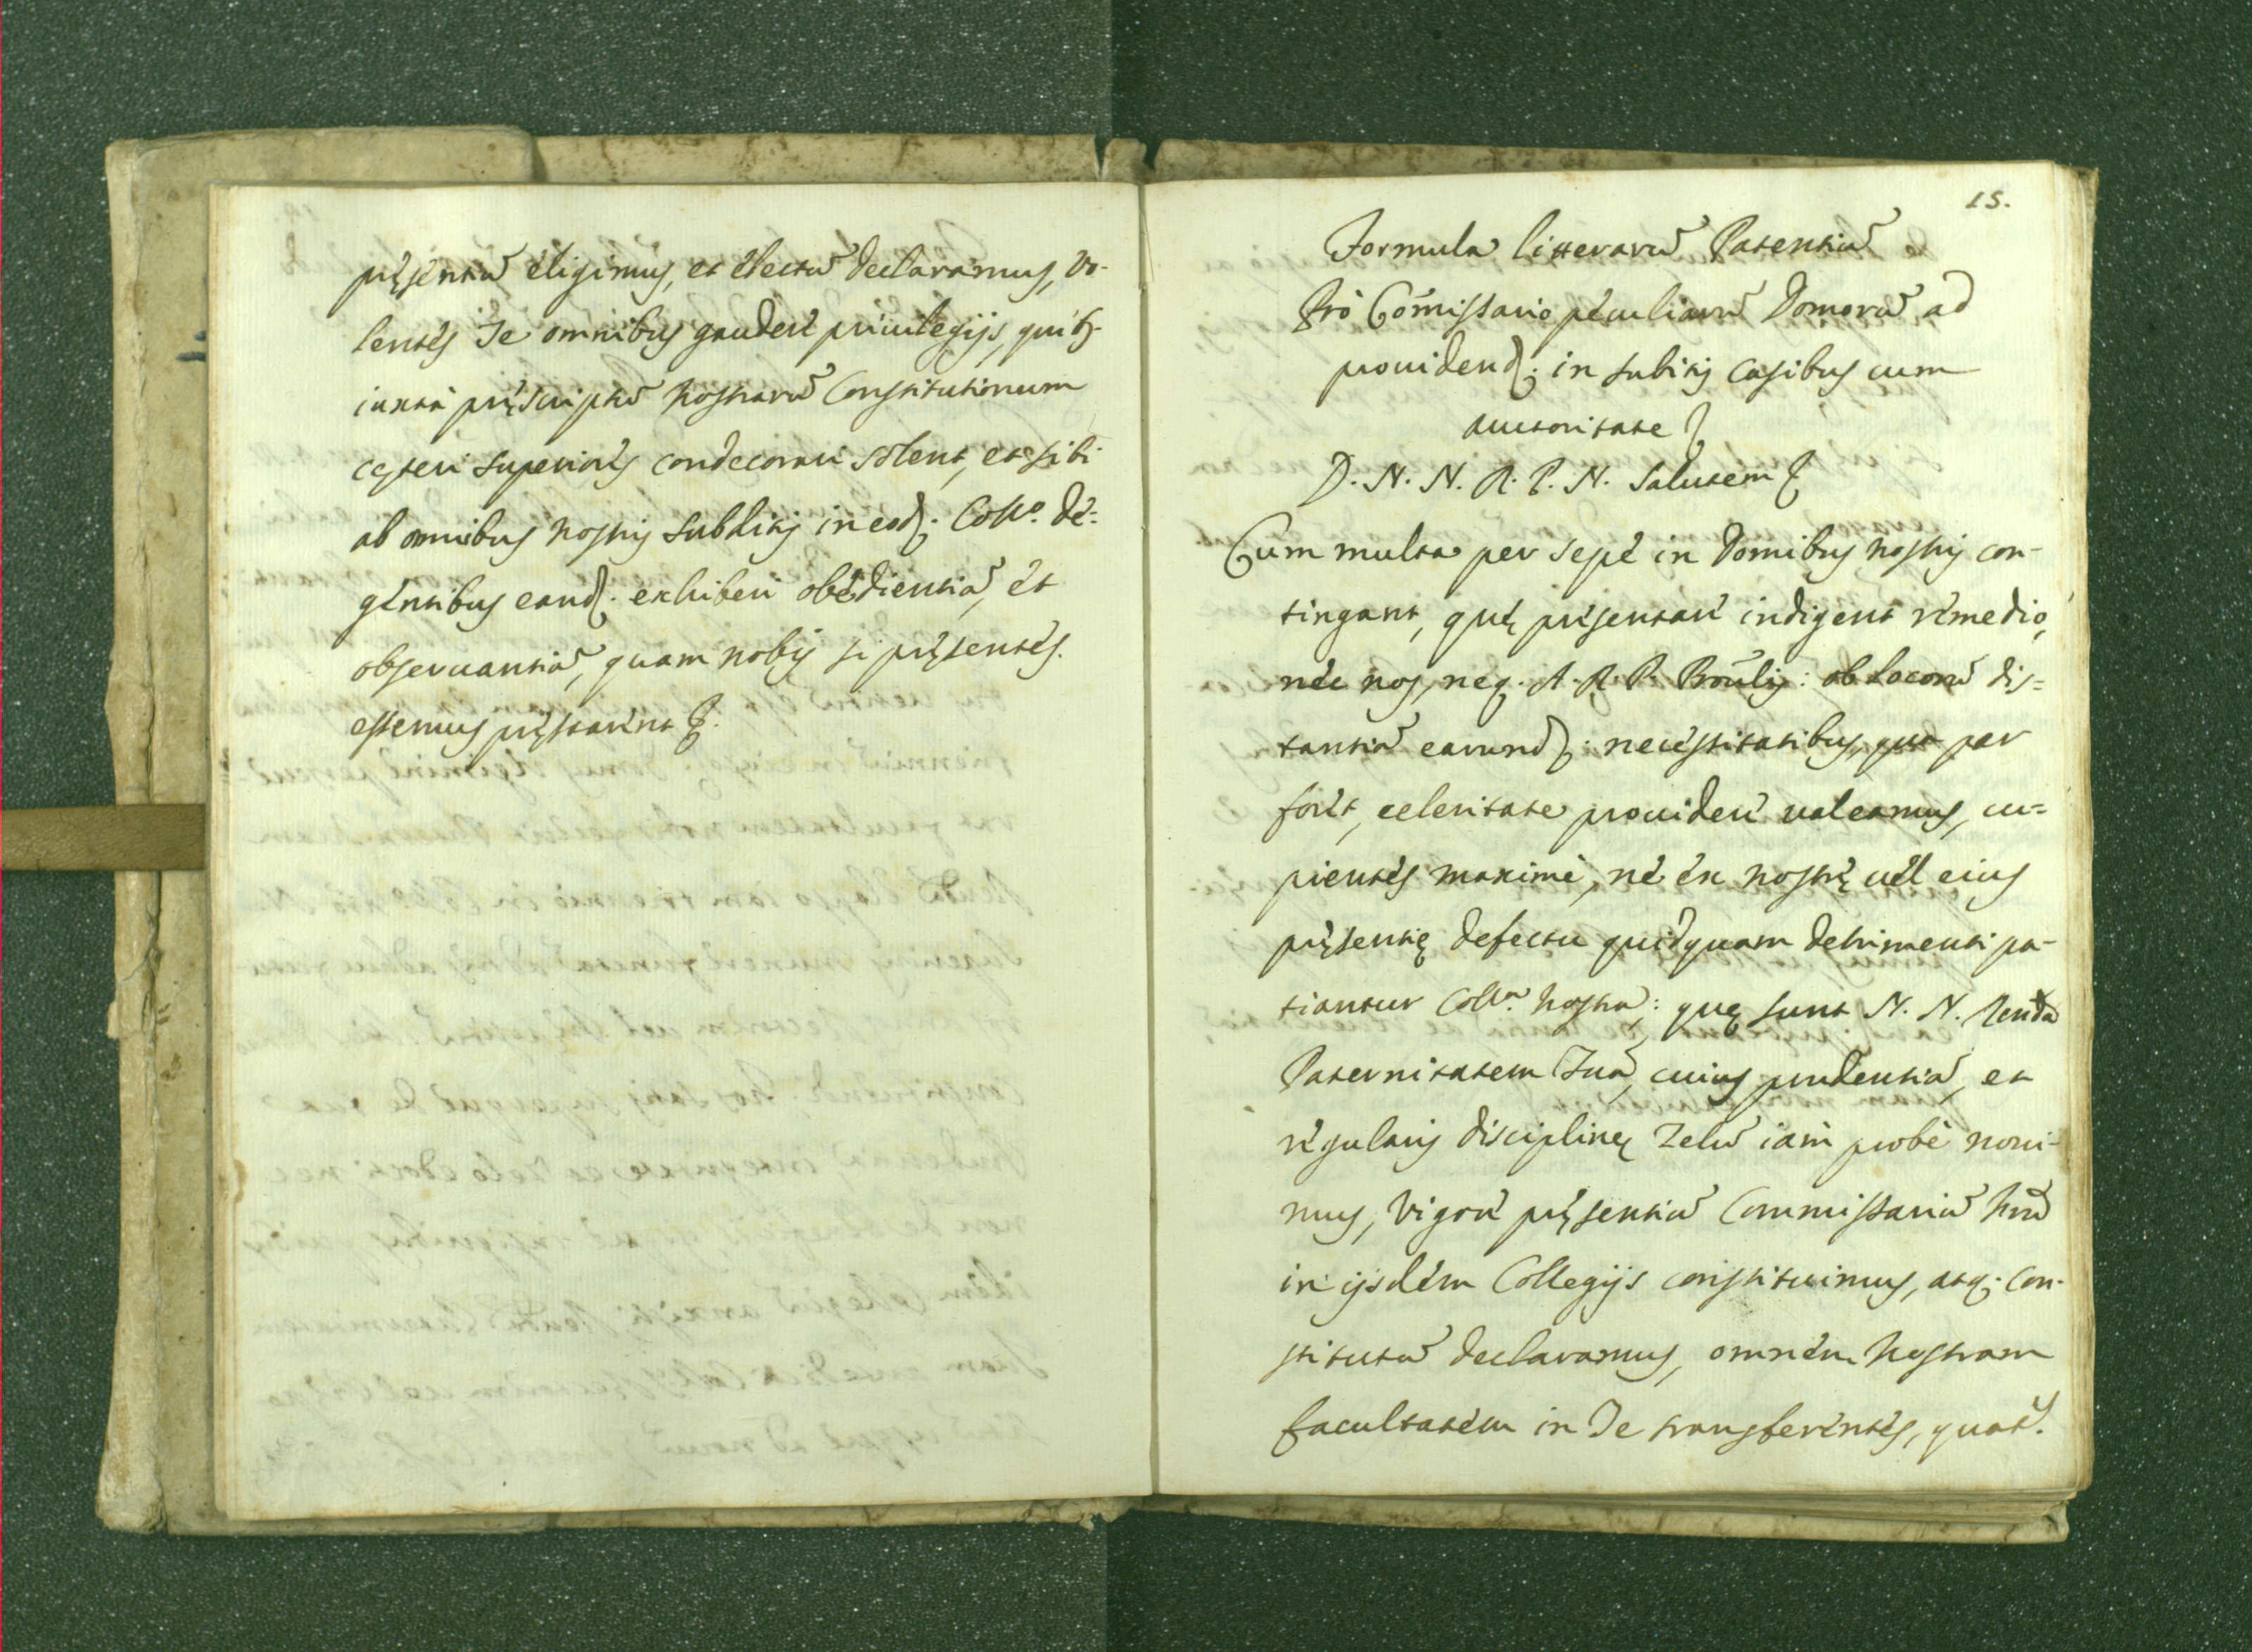 pręsentiũ eligimus, et electũ declaramus, vo-
lentes Te omnibus gaudere priuilegijs, quibʒ
iuxta pręscriptũ nostrarũ Constitutionum
cęteri superiores condecorari solent, et tibi
ab omnibus nostris subditis in eod. Collo. de-
gentibus eand. exhiberi obedientiã, et
obseruantiã, quam nobis si pręsentes
essemus pręstarent &.
15.
Formula litterarũ Patentiũ
Pro Com̃issario peculiarũ Domorũ ad
prouidend. in subitis casibus cum
auctoritate &
D. N. N. R. P. N. Salutem &
Cum multa per sepe in Domibus nostris con-
tingant, quę presentari indigent remedio,
nec nos, neq. A. R. P. Prou̅lis: ob locorũ dis=
tantiã earund. necessitatibus, qua par
foret, celeritate prouidere ualeamus, cu=
pientes maximè, ne ex nostrę uel eius
pręsentię defectu quidquam detrimenti pa-
tiantur Colla. nostra; quę sunt N. N. Renda
Paternitatem Tuã, cuius prudentiã, et
regularis disciplinę Zelũ iam probè noui-
mus, vigore pręsentiũ Commissariũ nrũ
in ijsdem Collegijs constituimus, atq. con-
stitutũ declaramus, omnem nostram
facultatem in Te transferentes, quat.